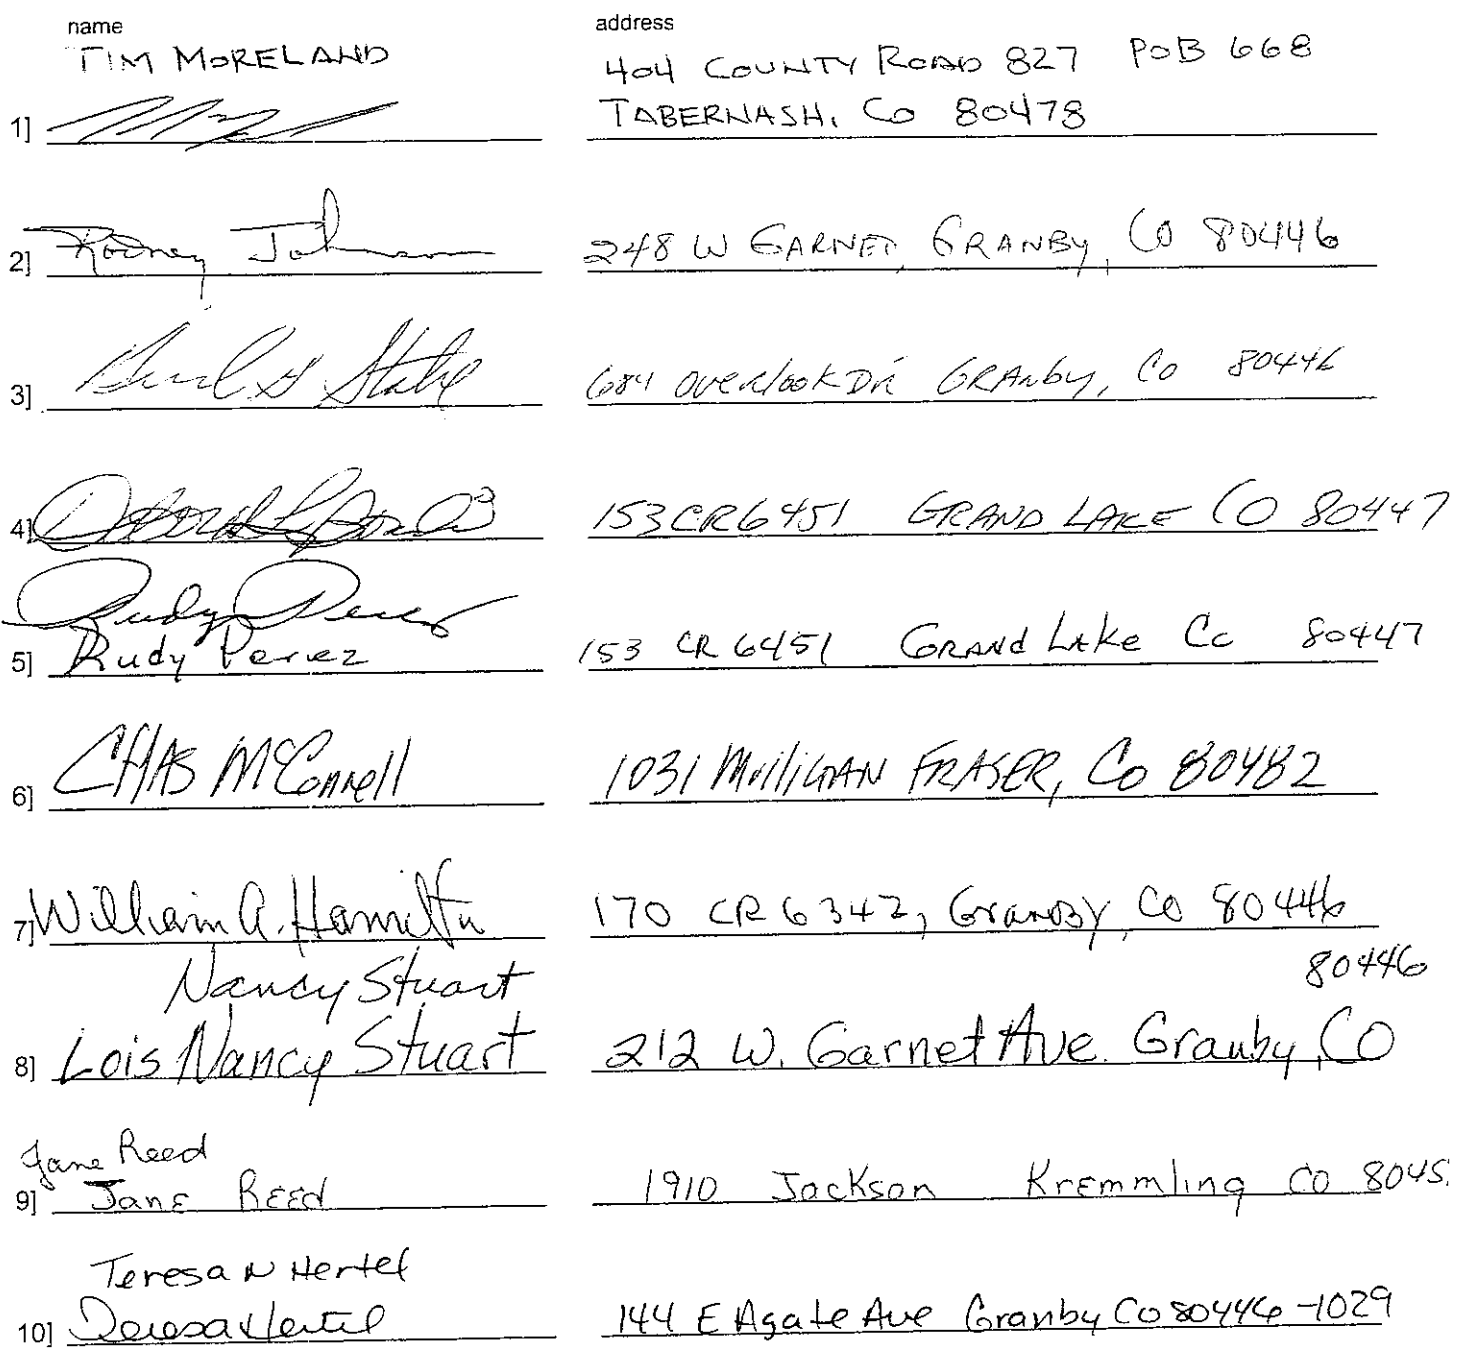 name address
TIM MORELAND 404 COUNTY ROAD 827 POB 668
1] TABERNASH, CO 80478
2] Rodney Johnson 248 W GARNET, GRANBY, CO 80446
3] 684 Overlook DR GRANby, Co 80446
4] 153 CR 6451 GRAND LAKE CO 80447
Rudy Perez
5] Rudy Perez 153 CR 6451 GRANd LAke Co 80447
6] CHAS McConnell 1031 MilliGAN FRASER, Co 80482
7] William A. Hamilton 170 CR 6342, GranBy, CO 80446
Nancy Stuart 80446
8] Lois Nancy Stuart 212 W. Garnet Ave. Granby, CO
Jane Reed
9] Jane Reed 1910 Jackson Kremmling CO 8045
Teresa N Hertel
10] Teresa Hertel 144 E Agate Ave Granby CO 80446-1029